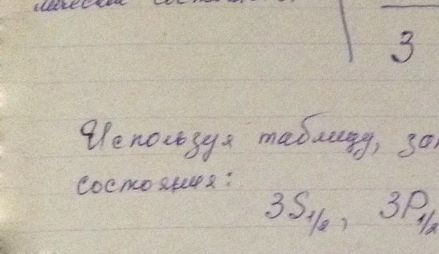 3
Используя таблицу,
состояния:
3S1/2, 3P1/2